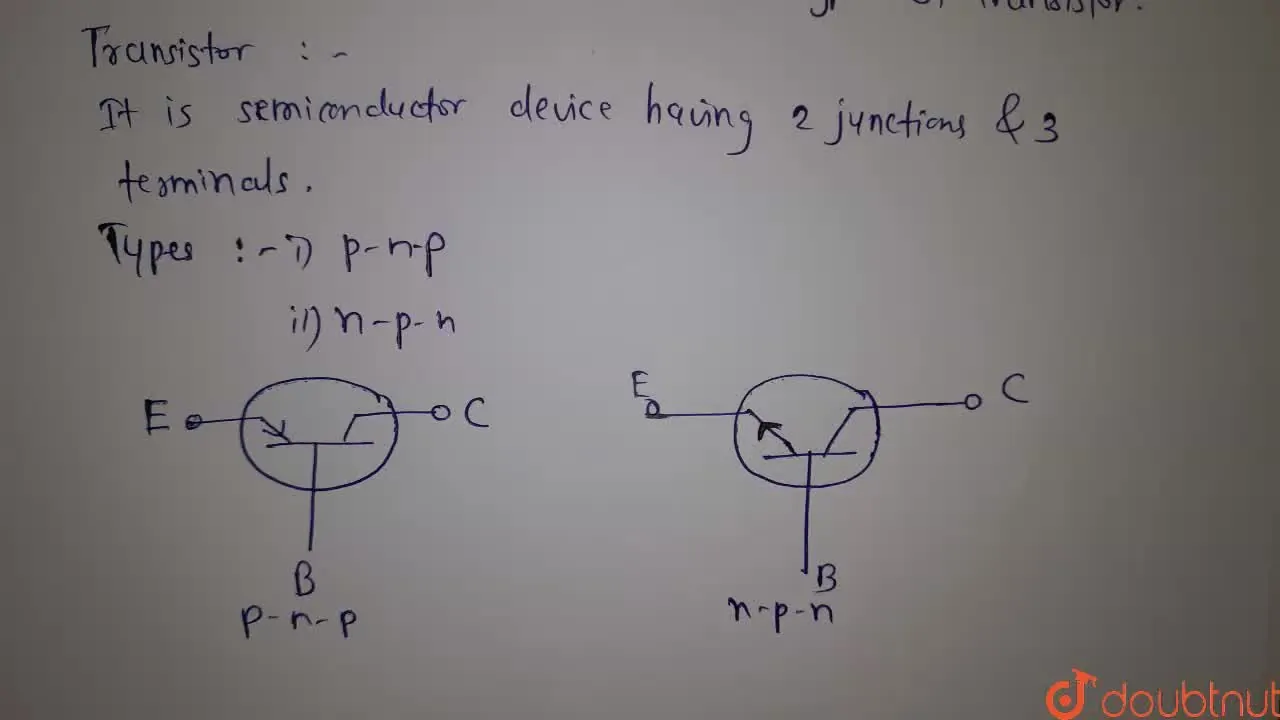 of Transistor.
Transistor :-
It is semiconductor device having 2 junctions & 3
terminals.
Types :- i) p-n-p
ii) n-p-n
E C
E C
B
p-n-p
B
n-p-n
doubtnut